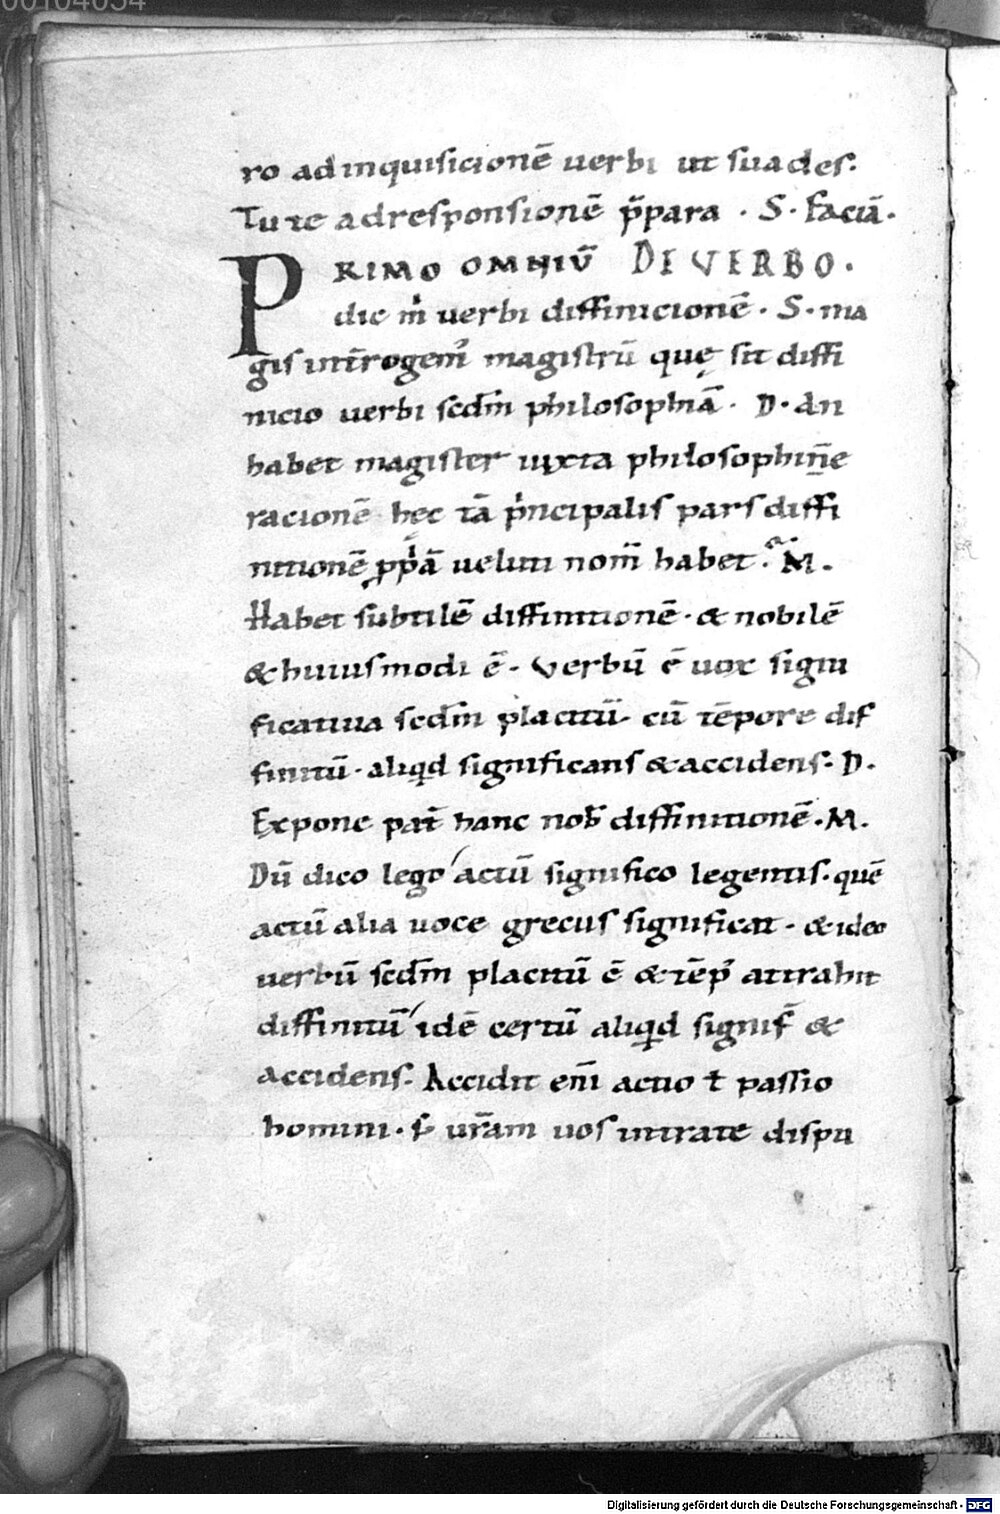 00104054
ro ad inquisicionē uerbi ut suades.
Tu te ad responsionē p̄para . S . Faciā.
PRIMO OMNIŪ DE VERBO.
dic m̍ uerbi diffinicionē . S . ma
gis int̄rogem᷒ magistrū quę sit diffi
nicio uerbi scdm̄ philosophiā . D . An
habet magister iuxta philosophinę
racionē hec tā p̍ncipalis pars diffi
nitionē ꝓp̍ā ueluti nom̄ habet . M .
Habet subtilē diffinitionē . & nobilē
& huiusmodi ē . Verbū ē uox signi
ficatiua scdm̄ placitū . cū tēpore dif
finitū . aliqd significans & accidens . D .
Expone pat̄ hanc nob̄ diffinitionē . M .
Dū dico lego actū significo legentis . quē
actū alia uoce grecus significat . & ideo
uerbū scdm̄ placitū ē & tēp᷒ attrahit
diffinitū idē certū aliqd signif̄ &
accidens . Accidit eni̅ actio ł passio
homini . s; ur̄am uos intrate dispu
Digitalisierung gefördert durch die Deutsche Forschungsgemeinschaft - DFG